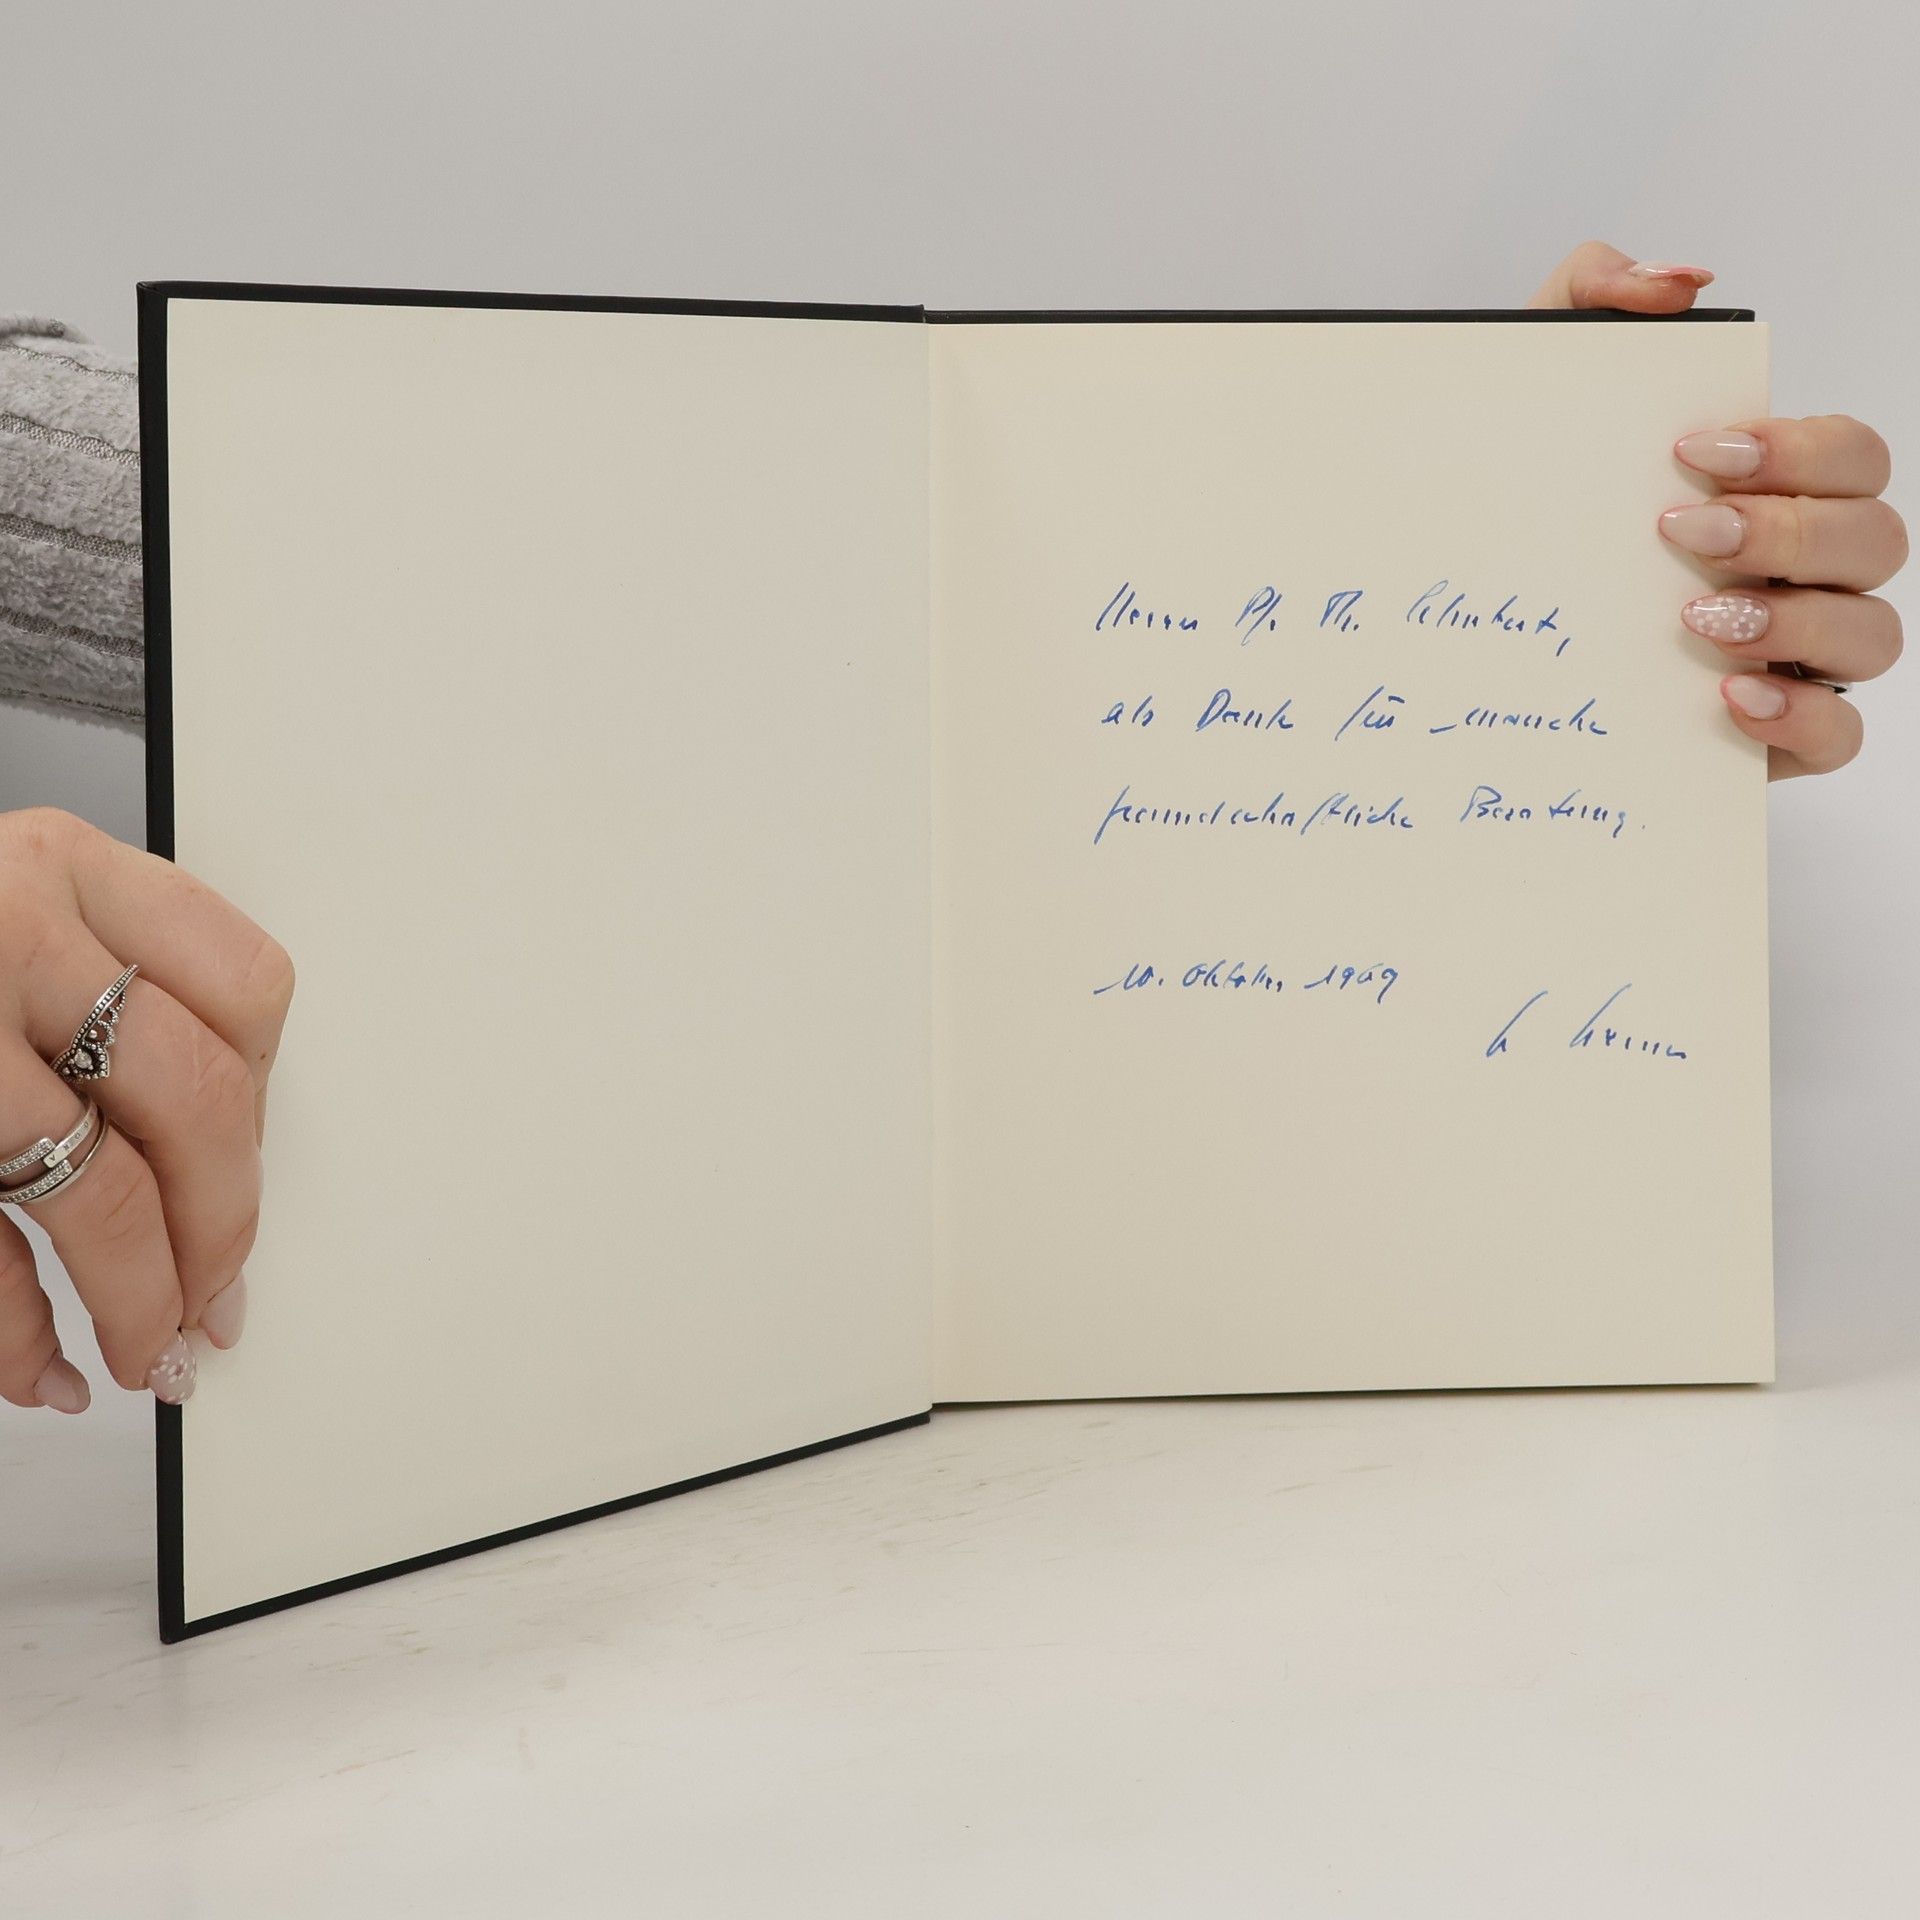 Herrn Pf. Th.
als Dank für manche
freundschaftliche Beratung.
10. Oktober 1969